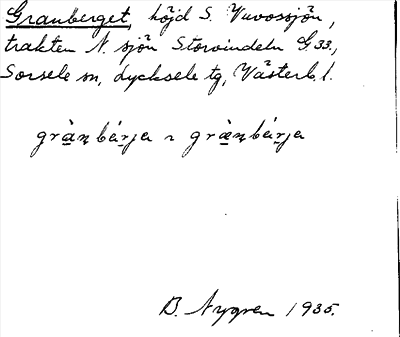 Granberget, höjd S. Vuvossjön,
trakten N. sjön Storvindeln G.33.,
Sorsele sn, Lycksele tg, Västerb. l.
grànbárja ~ grænbárja
B. Nygren 1935.